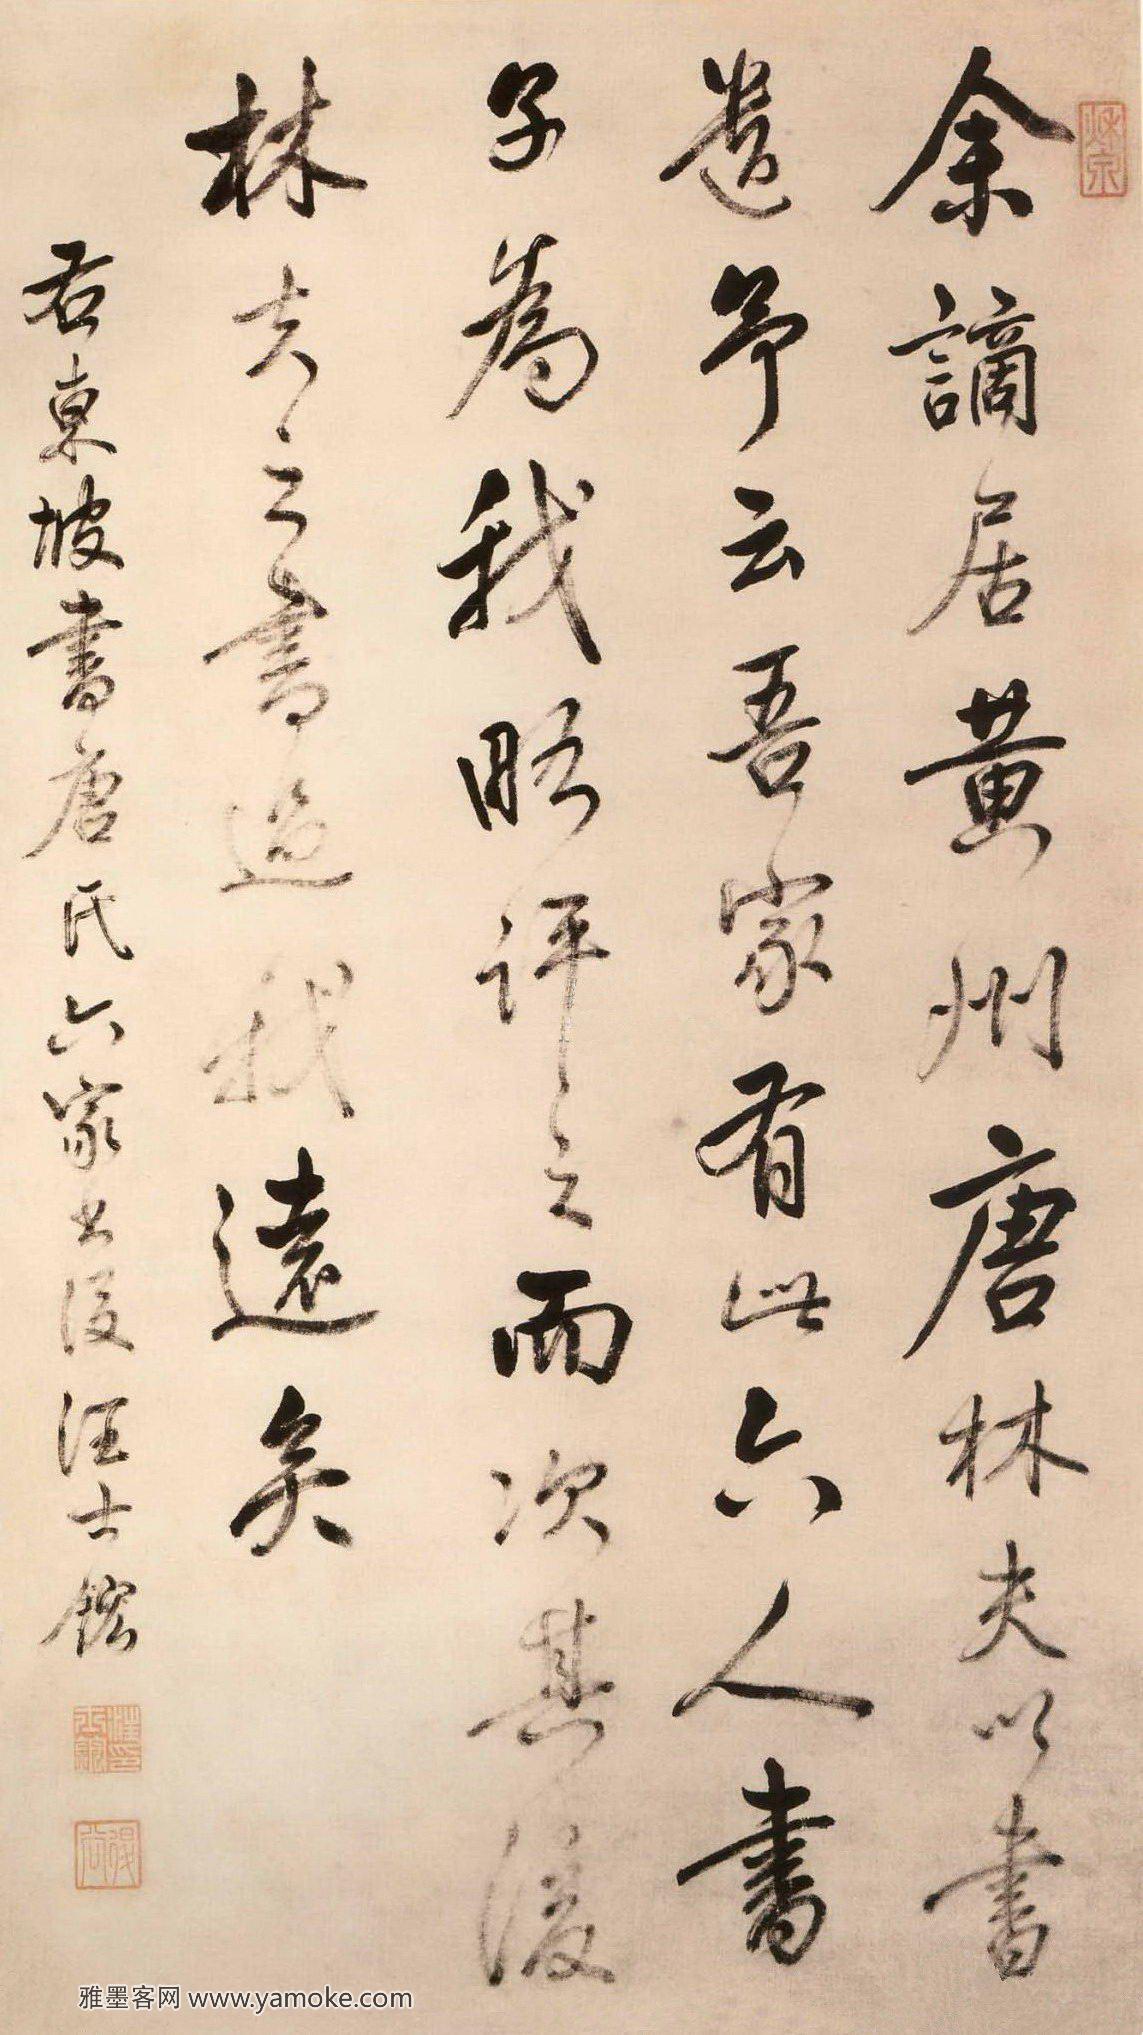 余謫居黄州唐林夫以書
遣予云吾家有此六人書
子為我略評之而次其後
林夫之書過我遠矣
右東坡書唐氏六家書後汪士鋐
雅墨客网 www.yamoke.com